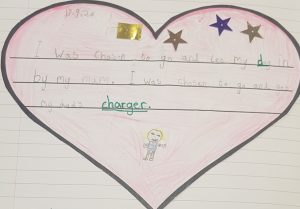 D.9.20
I was chosen to go and my dy in
by my mum. I was chosen to go and
my dad's charger.